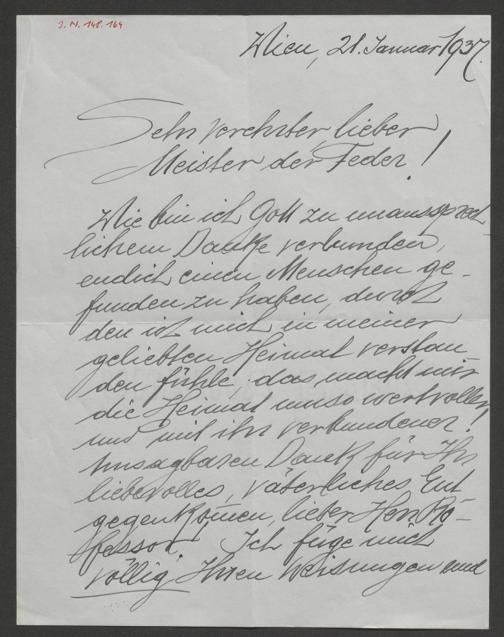 I. N. 148.164
Wien, 21. Januar 1937.
Sehr verehrter, lieber
Meister der Feder!
Wie bin ich Gott zu unaussprech
lichem Danke verbunden,
endlich einen Menschen ge-
funden zu haben, durch
den ich mich in meiner
geliebten Heimat verstan-
den fühle, das macht mir
die Heimat umso wertvoller
und mit ihr verbundener!
Unsagbaren Dank für Ihr
liebevolles, väterliches Ent
gegenkom̄en, lieber Herr Pro-
fessor. Ich füge mich
völlig Ihren Weisungen und